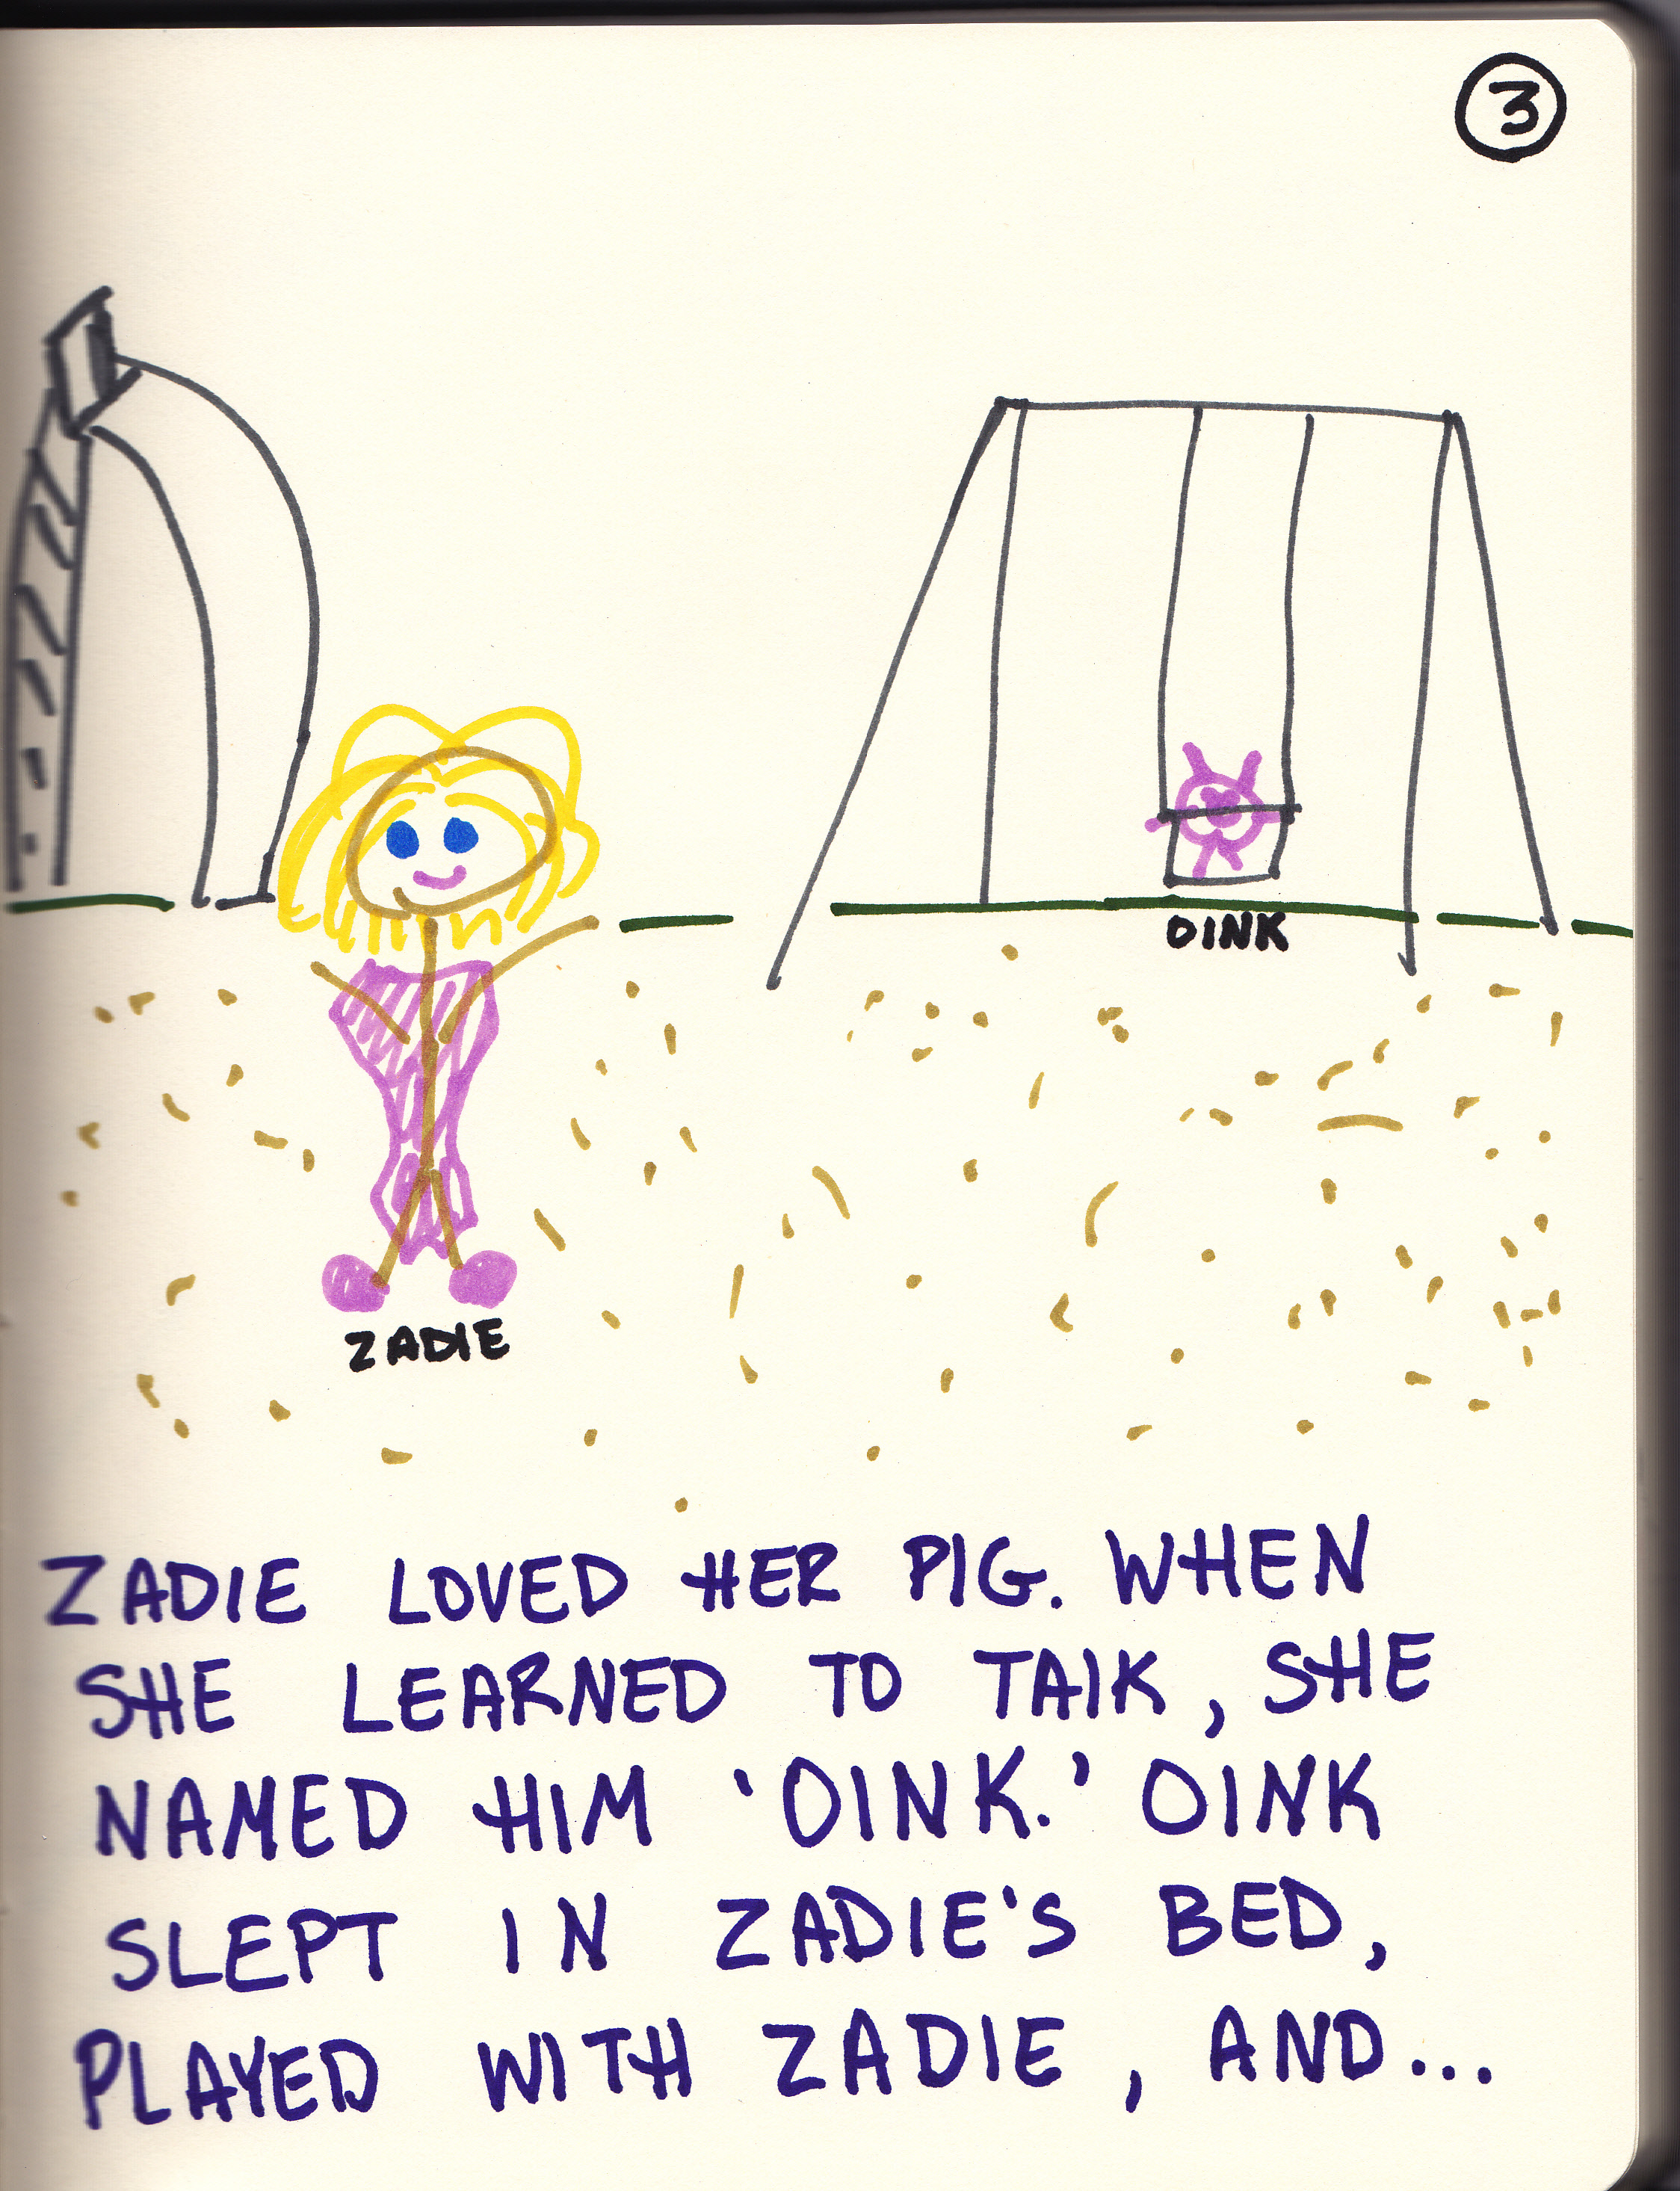 3
OINK
ZADIE
ZADIE LOVED HER PIG. WHEN
SHE LEARNED TO TALK, SHE
NAMED HIM 'OINK.' OINK
SLEPT IN ZADIE'S BED,
PLAYED WITH ZADIE, AND...